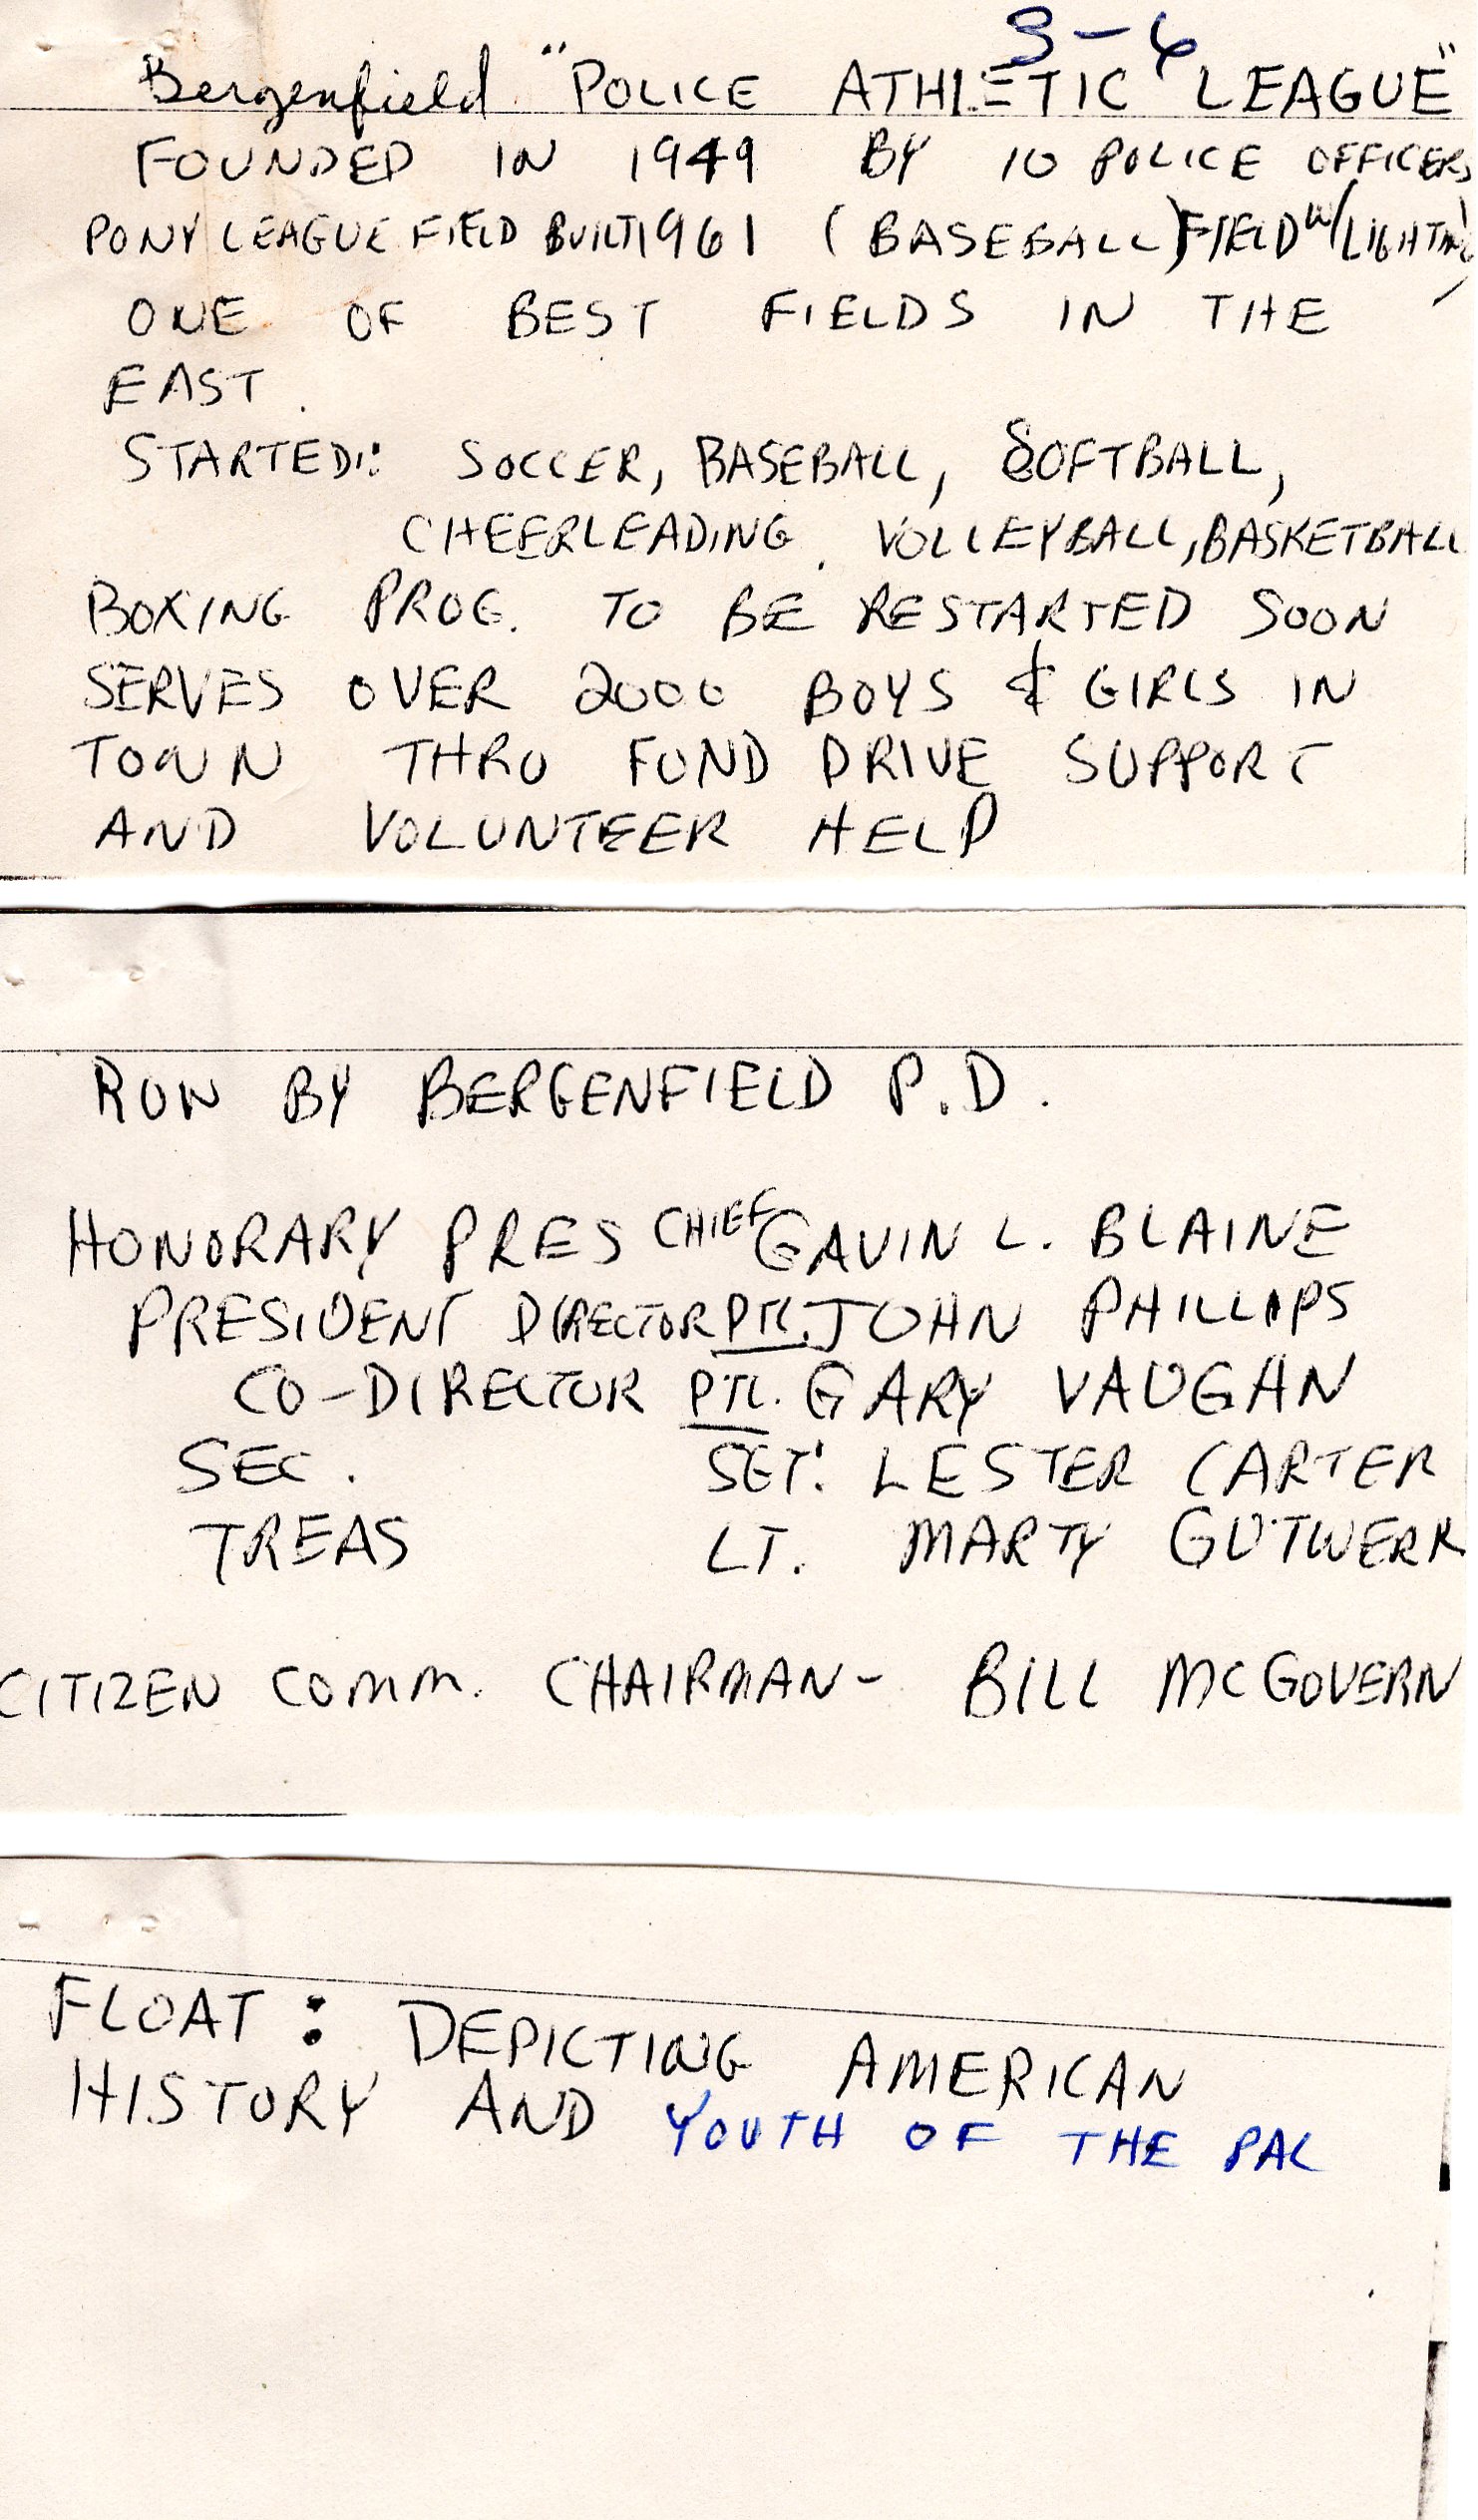 3-6
Bergenfield "POLICE ATHLETIC LEAGUE"
FOUNDED IN 1949 BY 10 POLICE OFFICERS
PONY LEAGUE FIELD BUILT 1961 (BASEBALL) FIELD W/LIGHTING
ONE OF BEST FIELDS IN THE
EAST.
STARTED: SOCCER, BASEBALL, SOFTBALL,
CHEERLEADING, VOLLEYBALL, BASKETBALL
BOXING PROG. TO BE RESTARTED SOON
SERVES OVER 2000 BOYS & GIRLS IN
TOWN THRU FUND DRIVE SUPPORT
AND VOLUNTEER HELP
RUN BY BERGENFIELD P.D.
HONORARY PRES CHIEF GAVIN L. BLAINE
PRESIDENT DIRECTOR PTL. JOHN PHILLIPS
CO-DIRECTOR PTL. GARY VAUGHAN
SEC. SGT. LESTER CARTER
TREAS LT. MARTY GUTWERK
CITIZEN COMM. CHAIRMAN- BILL MCGOVERN
FLOAT: DEPICTING AMERICAN
HISTORY AND YOUTH OF THE PAL